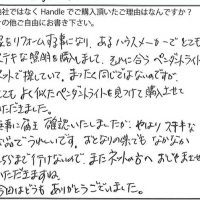 社ではなく Handle でご購入頂いたご理由はなんですか？
その他ご自由にお書き下さい。
をリフォームする事になり、あるハウスメーカーでとても
ステキな照明を購入しまして、それに合うペンダントライト
ネットで探していて、まったく同じではないのですが、
とてもよく似たペンダントライトを見つけて購入させて
いただきました。
無事に届き確認いたしましたが、やはりステキな
品でうれしいです。すとなりの県でもなかなか
まで行けないので、またネットの方へおじゃまさせ
いただきますね。
今回はどうもありがとうございました。